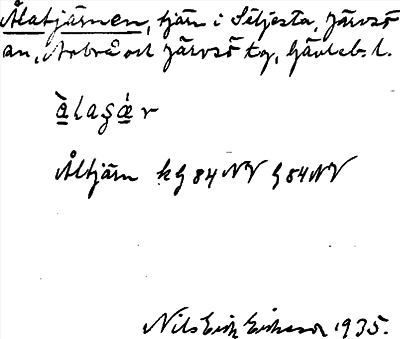 Ålatjärnen, tjärn i Säljesta, Järvsö
an, Arbrå och Järvsö tg, Gävleb. l.
àlagár
Åltjärn kg 84 NV g 84 NV
Nils Erik Eriksson 1935.